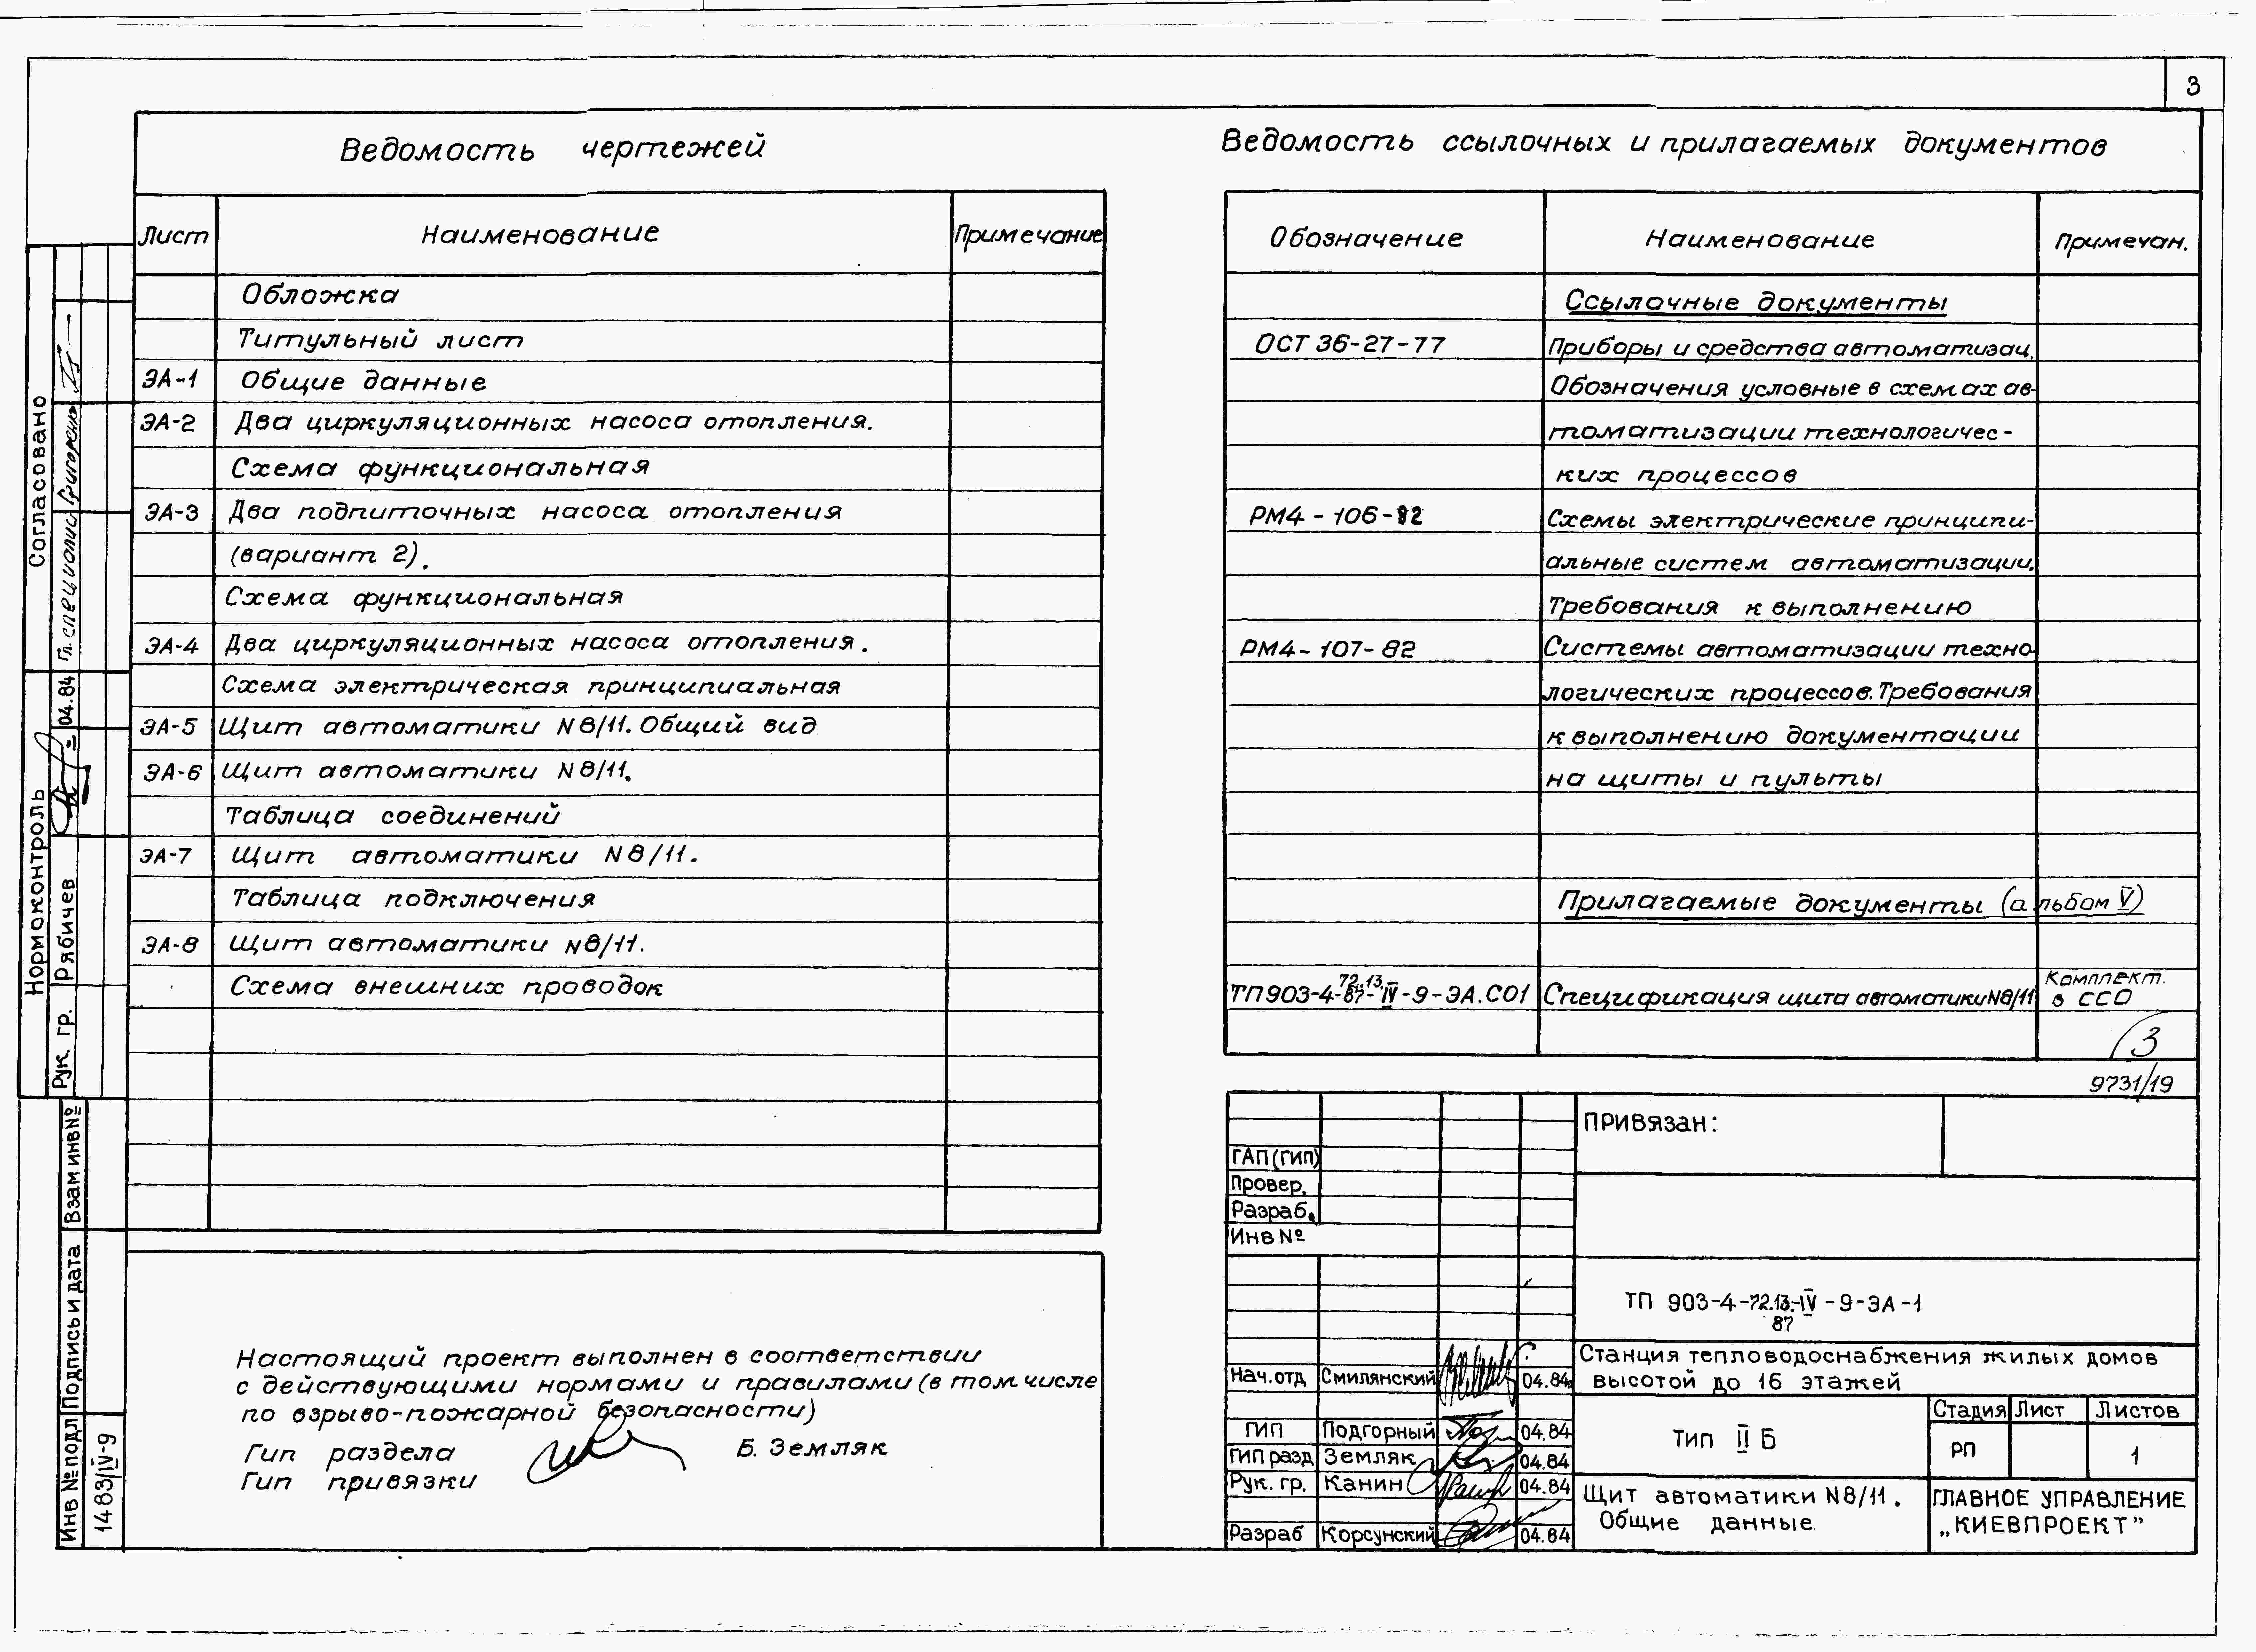 3
Ведомость чертежей
Лист Наименование Примечание
Обложка
Титульный лист
ЭА-1 Общие данные
ЭА-2 Два циркуляционных насоса отопления.
Схема функциональная
ЭА-3 Два подпиточных насоса отопления
(вариант 2).
Схема функциональная
ЭА-4 Два циркуляционных насоса отопления.
Схема электрическая принципиальная
ЭА-5 Щит автоматики N8/11. Общий вид
ЭА-6 Щит автоматики N8/11.
Таблица соединений
ЭА-7 Щит автоматики N8/11.
Таблица подключения
ЭА-8 Щит автоматики N8/11.
Схема внешних проводок
Ведомость ссылочных и прилагаемых документов
Обозначение Наименование Примечан.
Ссылочные документы
ОСТ 36-27-77 Приборы и средства автоматизац.
Обозначения условные в схемах ав-
томатизации технологичес-
ких процессов
РМ4-106-82 Схемы электрические принципи-
альные систем автоматизации.
Требования к выполнению
РМ4-107-82 Системы автоматизации техно-
логических процессов. Требования
к выполнению документации
на щиты и пульты
Прилагаемые документы (альбом V)
ТП903-4-72.13.87-IV-9-ЭА.СО1 Спецификация щита автоматики N8/11 Комплект.
в ССО
3
9731/19
Настоящий проект выполнен в соответствии
с действующими нормами и правилами (в том числе
по взрыво-пожарной безопасности)
Гип раздела Б. Земляк
Гип привязки
Согласовано
Гл. специалист Григоренко
Нормоконтроль
Рук. гр. Рябичев 04.84
Взам инв №
Подпись и дата
Инв № подл
1483/IV-9
ПРИВЯЗАН:
ГАП (ГИП)
Провер.
Разраб.
Инв №
ТП 903-4-72.13.-IV-9-ЭА-1
87
Нач.отд Смилянский 04.84
ГИП Подгорный 04.84
ГИП разд Земляк 04.84
Рук. гр. Канин 04.84
Разраб Корсунский 04.84
Станция тепловодоснабжения жилых домов
высотой до 16 этажей
Тип II Б
Стадия Лист Листов
РП 1
Щит автоматики N8/11.
Общие данные.
ГЛАВНОЕ УПРАВЛЕНИЕ
„КИЕВПРОЕКТ"